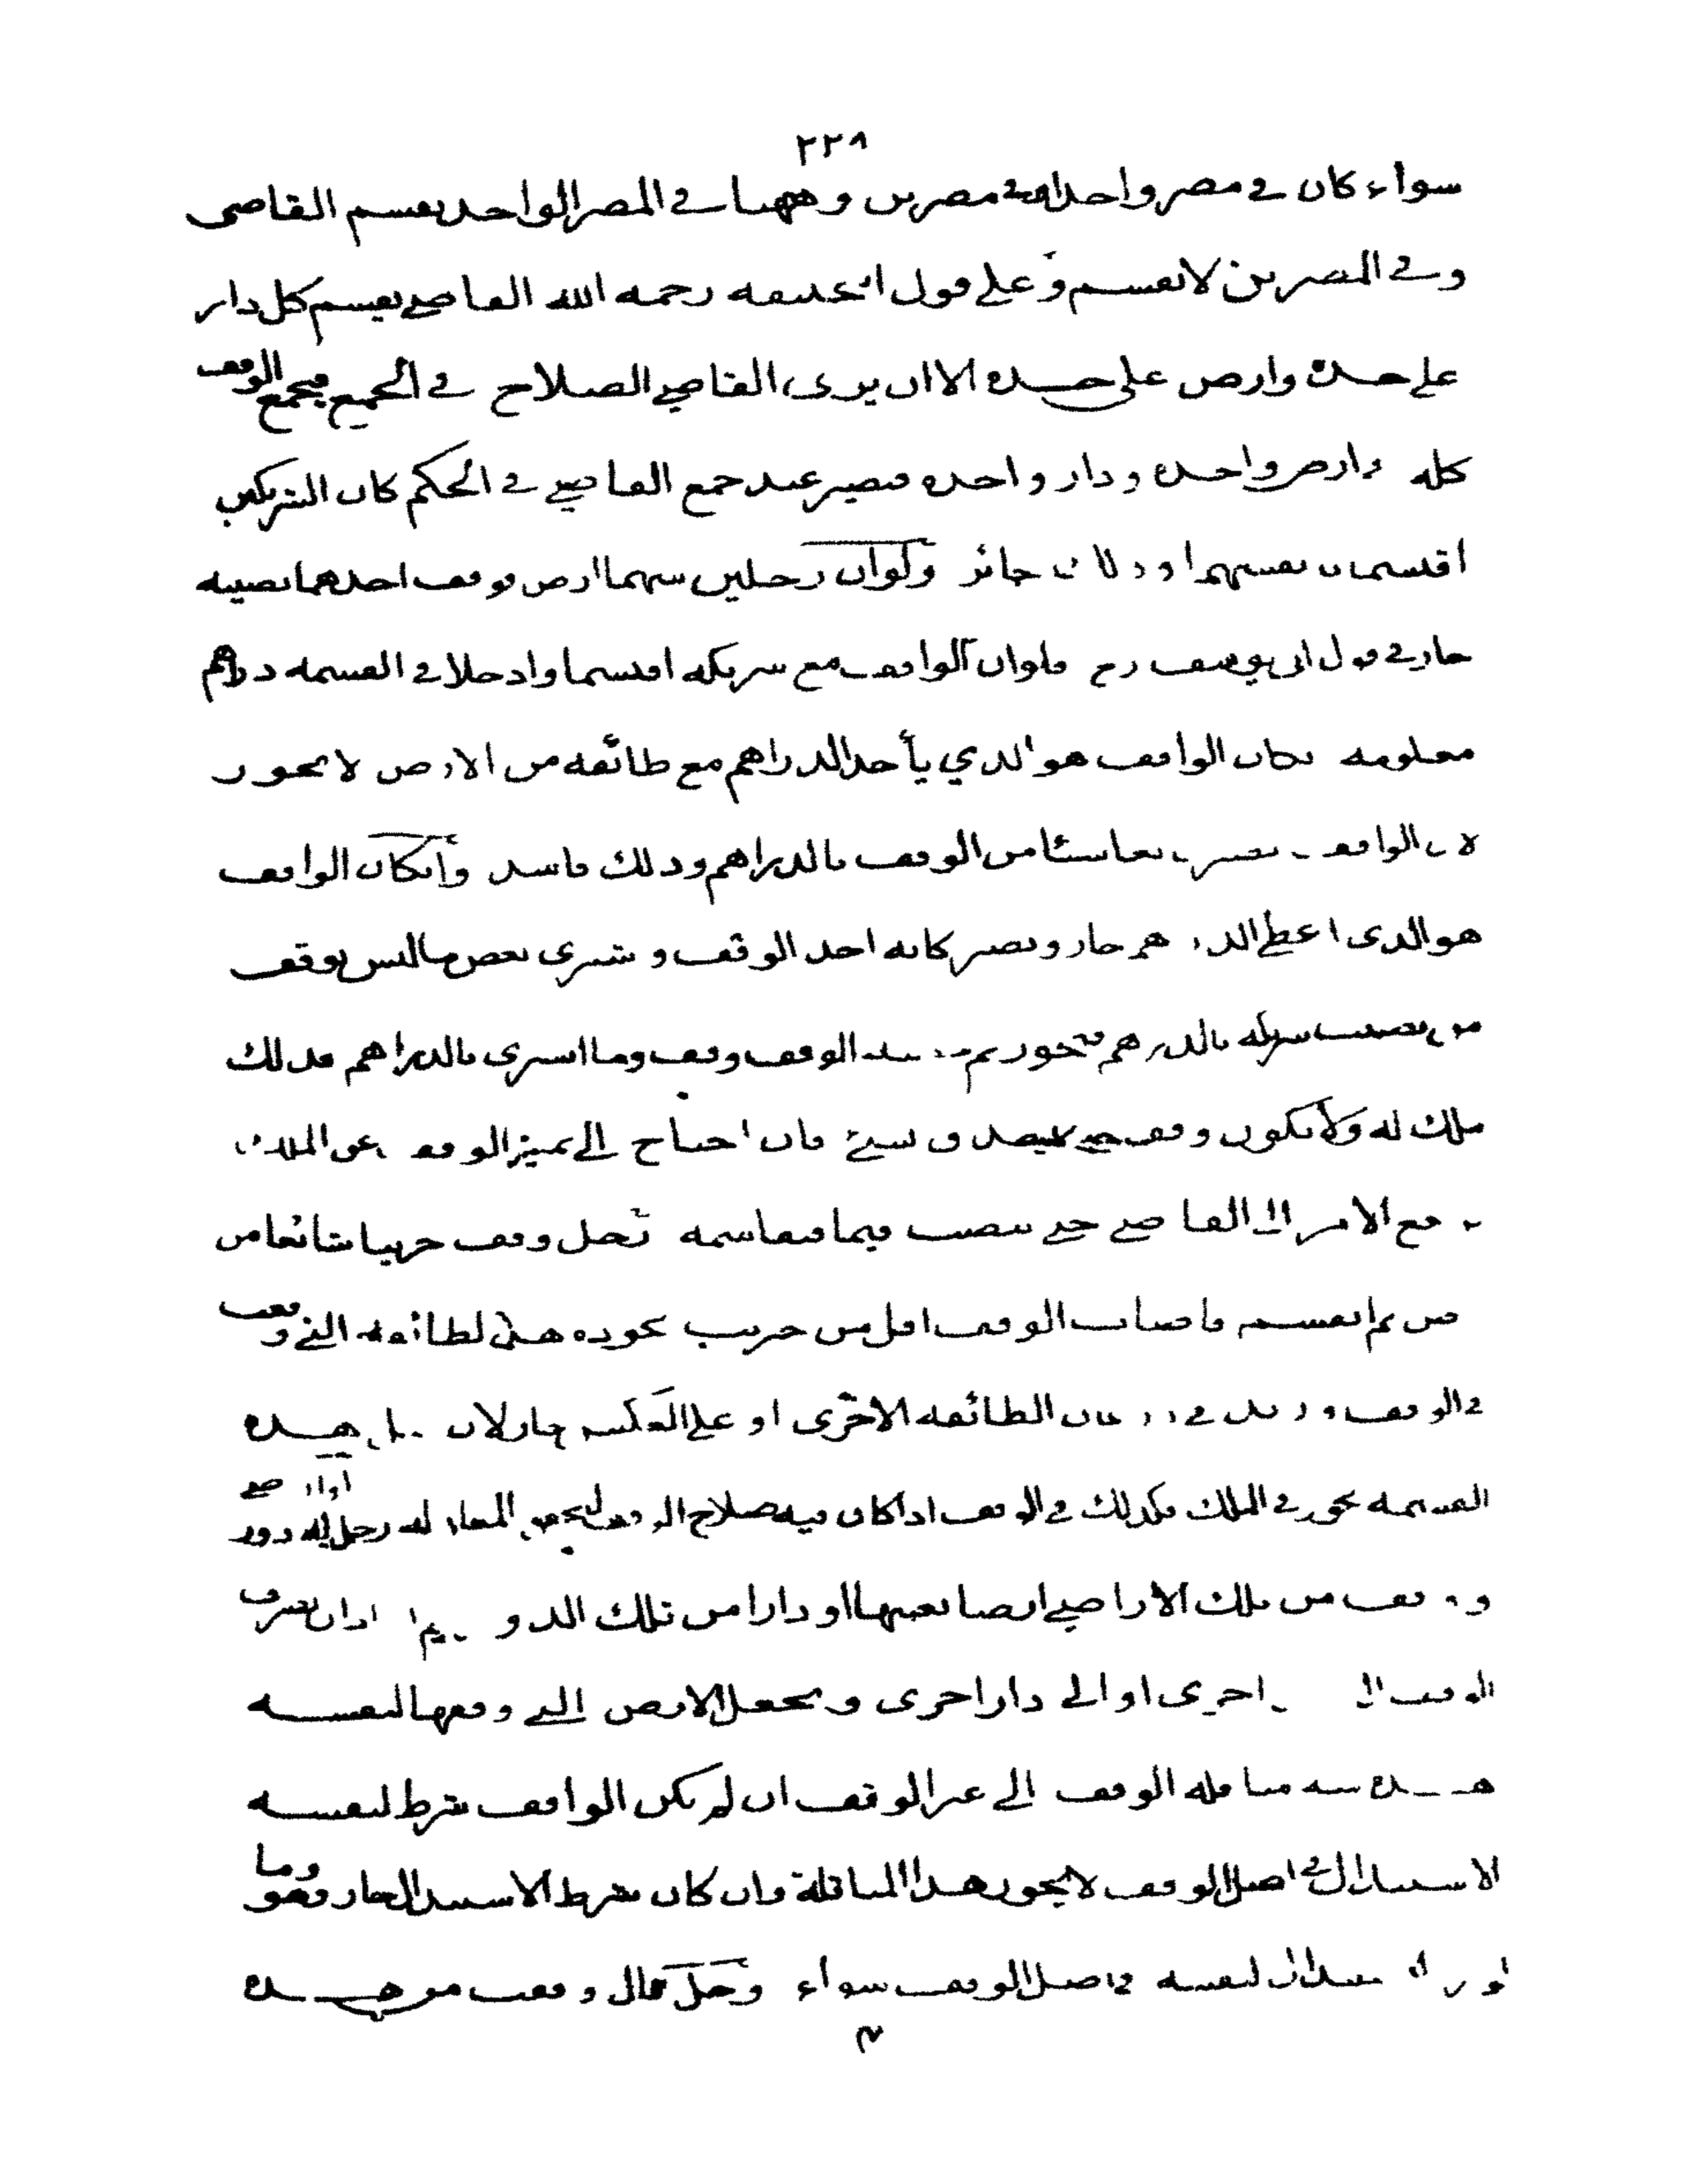 ٢٢٨
سواء كان في مصر واحد او في مصرين وههنا في المصر الواحد يقسم القاضي
وفي المصرين لا يقسم وعلى قول ابي حنيفه رحمه الله القاضي يقسم كل دار
على حدة وارض على حده الا ان يرى القاضي الصلاح في الجميع فيجمع الوقف
كله وارض واحده ودار واحده فيصير عند جمع القاضي في الحكم كان الشريكين
اقتسما بانفسهما وذلك جائز ولو ان رجلين بينهما ارض فوقف احدهما نصيبه
جاز في قول ابي يوسف رح فلو ان الواقف مع شريكه اقتسما وادخلا في القسمه دراهم
معلومه فكان الواقف هو الذي يأخذ الدراهم مع طائفه من الارض لا يجوز
لان الواقف يصير بايعا شيئا من الوقف بالدراهم وذلك فاسد وان كان الواقف
هو الذي اعطى الدراهم جاز ويصير كانه اخذ الوقف وشرى بعض ما ليس بوقف
من نصيب شريكه بالدراهم فيجوز ثم نصيب الوقف وقف وما اشترى بالدراهم فذلك
ملك له ولا يكون وقف فان احتاج الى تمييز الوقف عن الملك
يرفع الامر الى القاضي حتى ينصب قيما فيقاسمه رجل وقف جريبا شائعا من
ارض ثم قسم فاصاب الوقف اقل من جريب لجوده هذه الطائفه التي وقعت
في الوقف او زيد في ذرعان الطائفه الاخرى او على العكس جاز لان مثل هذه
القسمه يجوز في الملك فكذلك في الوقف اذا كان فيه صلاح الوقف ليتحقق المعادله رجل له دور او اراضي
ووقف من تلك الاراضي ارضا بعينها او دارا من تلك الدور ثم اراد ان يصرف
الوقف الى اخرى او الى دار اخرى ويجعل الارض التي وقفها لنفسه
هذه مناقله الوقف الى غير الوقف ان لم يكن الواقف شرط لنفسه
الاستبدال في اصل الوقف لا يجوز هذا المناقلة وان كان شرط الاستبدال جاز وهو وما
لو شرط الاستبدال لنفسه في اصل الوقف سواء رجل قال وقفت من هذه